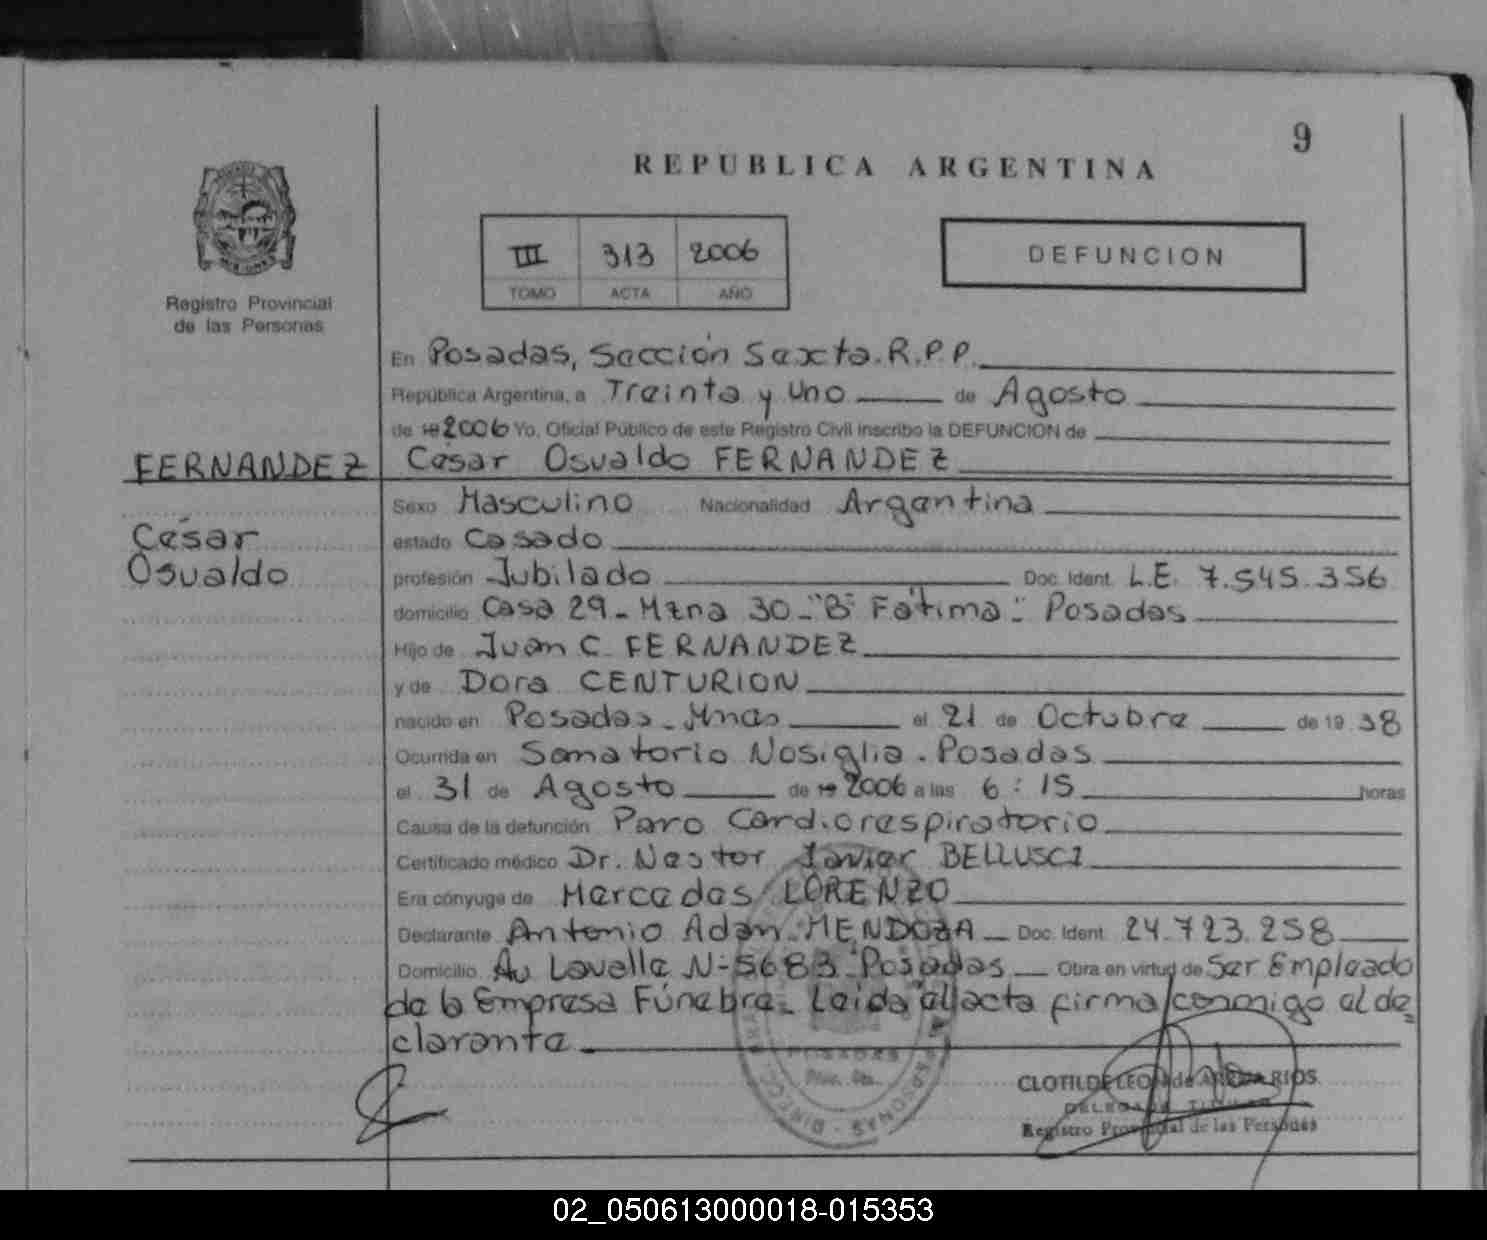 9
REPUBLICA ARGENTINA
III 313 2006
TOMO ACTA AÑO
DEFUNCION
Registro Provincial
de las Personas
En Posadas, Sección Sexta. R.P.P.
República Argentina, a Treinta y Uno de Agosto
de 19 2006 Yo, Oficial Público de este Registro Civil inscribo la DEFUNCION de
FERNANDEZ César Osvaldo FERNANDEZ
Sexo Masculino Nacionalidad Argentina
César
Osvaldo
estado Casado
profesión Jubilado Doc. Ident. L.E. 7.545.356
domicilio Casa 29 - Mzna 30 - "Bº Fátima" - Posadas
Hijo de Juan C. FERNANDEZ
y de Dora CENTURION
nacido en Posadas - Mnes el 21 de Octubre de 19 38
Ocurrida en Sanatorio Nosiglia. Posadas
el 31 de Agosto de 19 2006 a las 6:15 horas
Causa de la defunción Paro Cardiorespiratorio
Certificado médico Dr. Nestor Javier BELLUSCI
Era cónyuge de Mercedes LORENZO
Declarante Antonio Adan MENDOZA Doc. Ident. 24.723.258
Domicilio Av Lavalle N- 5683 Posadas Obra en virtud de Ser Empleado
de la Empresa Fúnebre. Leida el acta firma conmigo el de=
clarante
POSADAS
CLOTILDE LEON de RIOS
DELEGADA TITULAR
Registro Provincial de las Personas
02_050613000018-015353